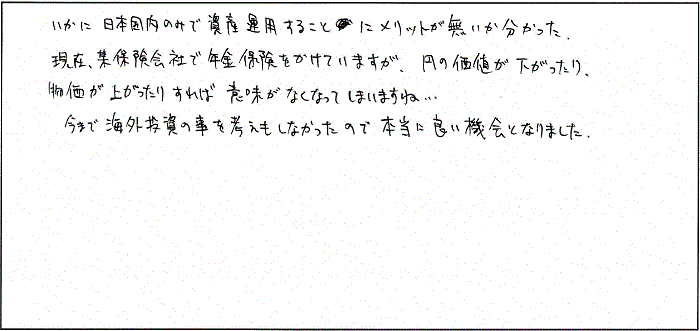 いかに日本国内のみで資産運用することにメリットが無いか分かった.
現在、某保険会社で年金保険をかけていますが、円の価値が下がったり、
物価が上がったりすれば意味がなくなってしまいますね…
今まで海外投資の事を考えもしなかったので本当に良い機会となりました.